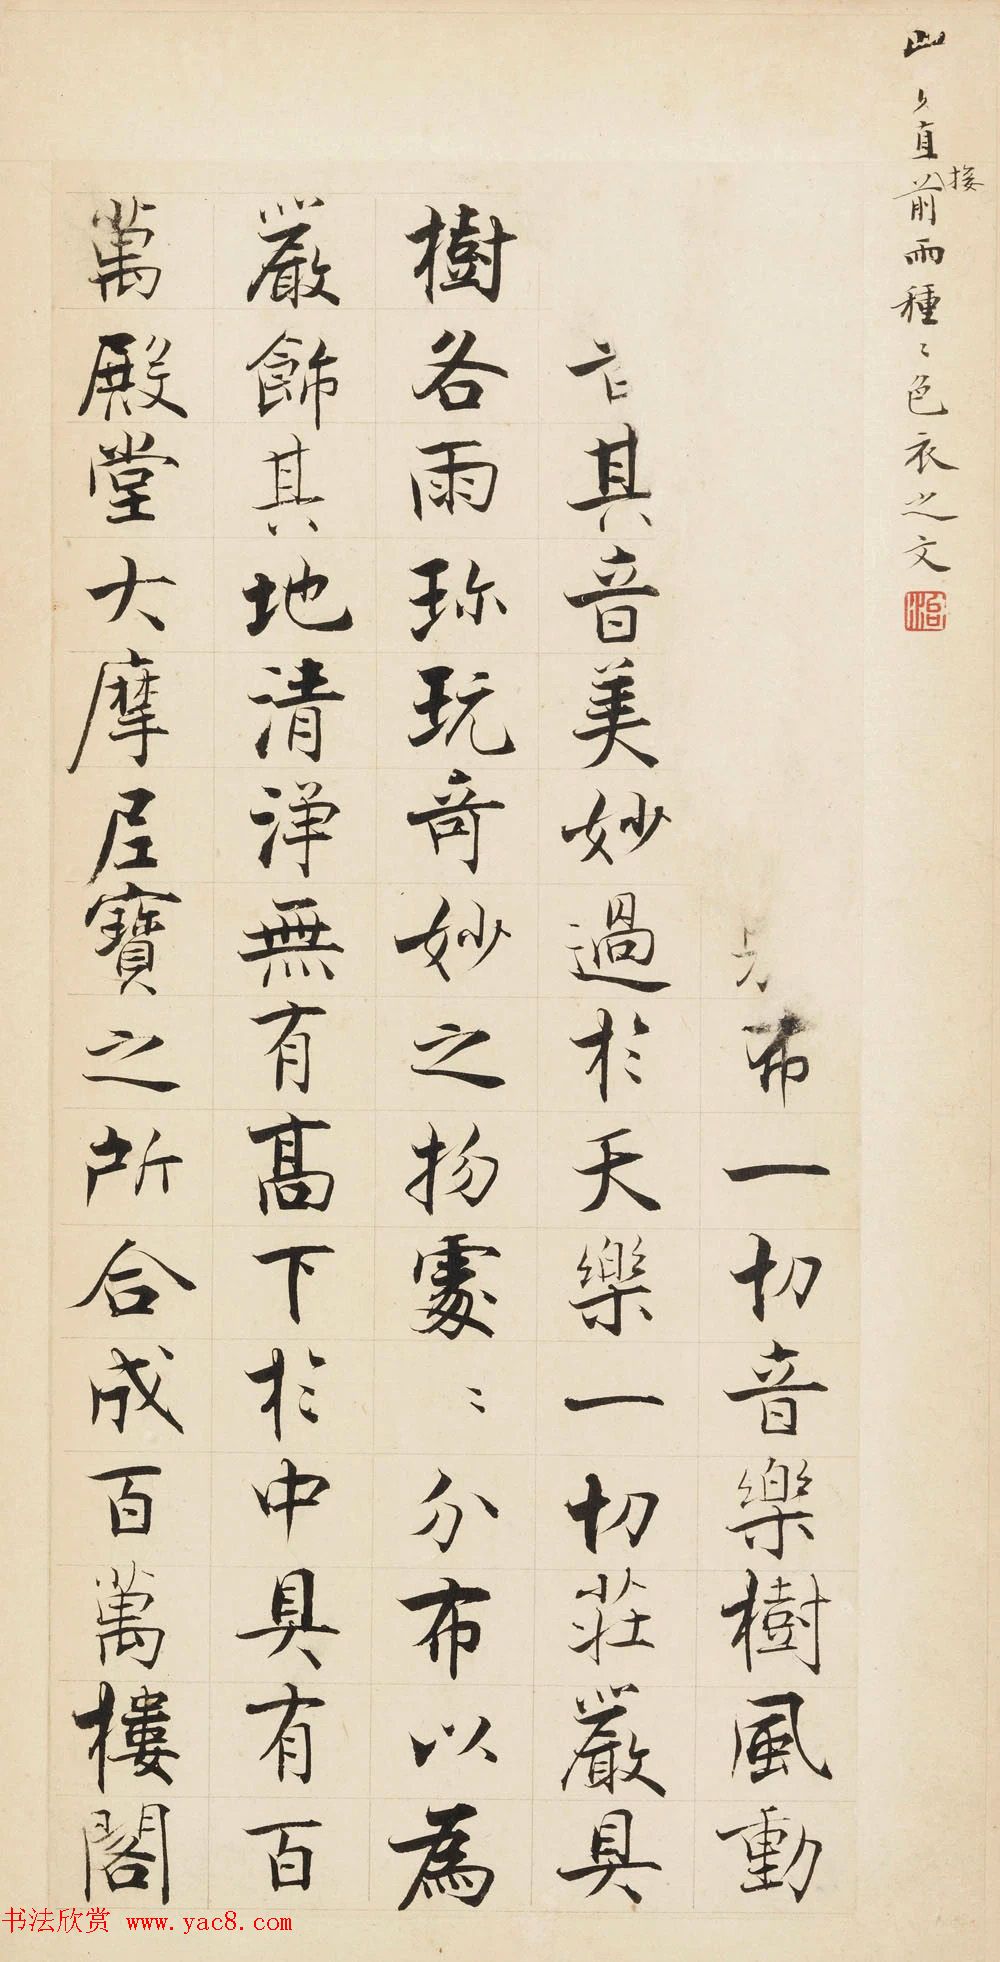 直接前雨種〻色衣之文
布一切音樂樹風動
其音美妙過於天樂一切莊嚴具
樹各雨珎玩奇妙之物處〻分布以為
嚴飾其地清淨無有高下於中具有百
萬殿堂大摩尼寶之所合成百萬樓閣
书法欣赏 www.yac8.com